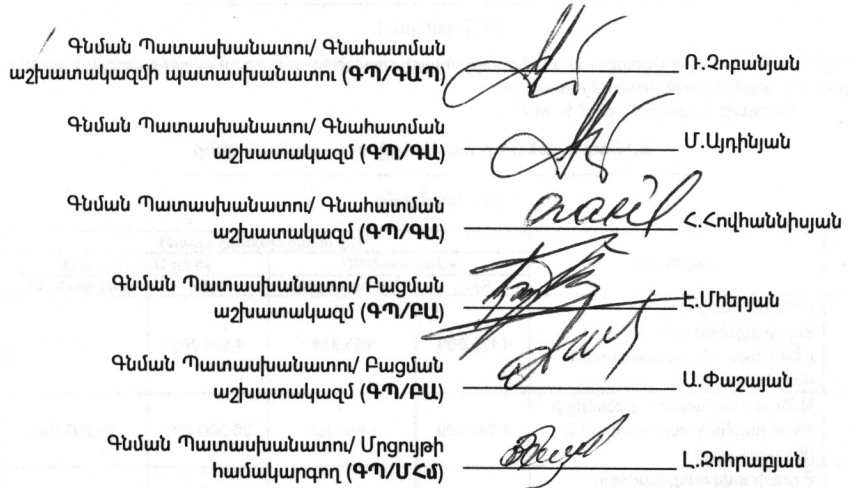 Գնման Պատասխանատու/ Գնահատման
աշխատակազմի պատասխանատու (ԳՊ/ԳԱՊ) Ռ.Չոբանյան
Գնման Պատասխանատու/ Գնահատման
աշխատակազմ (ԳՊ/ԳԱ) Մ.Այդինյան
Գնման Պատասխանատու/ Գնահատման
աշխատակազմ (ԳՊ/ԳԱ) Հ.Հովհաննիսյան
Գնման Պատասխանատու/ Բացման
աշխատակազմ (ԳՊ/ԲԱ) Է.Մհերյան
Գնման Պատասխանատու/ Բացման
աշխատակազմ (ԳՊ/ԲԱ) Ա.Փաշայան
Գնման Պատասխանատու/ Մրցույթի
համակարգող (ԳՊ/ՄՀմ) Լ.Զոհրաբյան